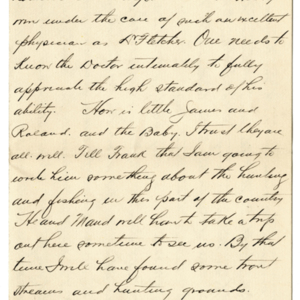 own under the care of such an excellent
physician as Dr Fletcher. One needs to
know the Doctor intimately to fully
appreciate the high standard of his
ability. How is little James and
Roland, and the Baby. I trust they are
all well. Tell Frank that I am going to
write him something about the hunting
and fishing in this part of the country
He and Maud will have to take a trip
out here sometime to see us. By that
time I will have found some trout
streams and hunting grounds.